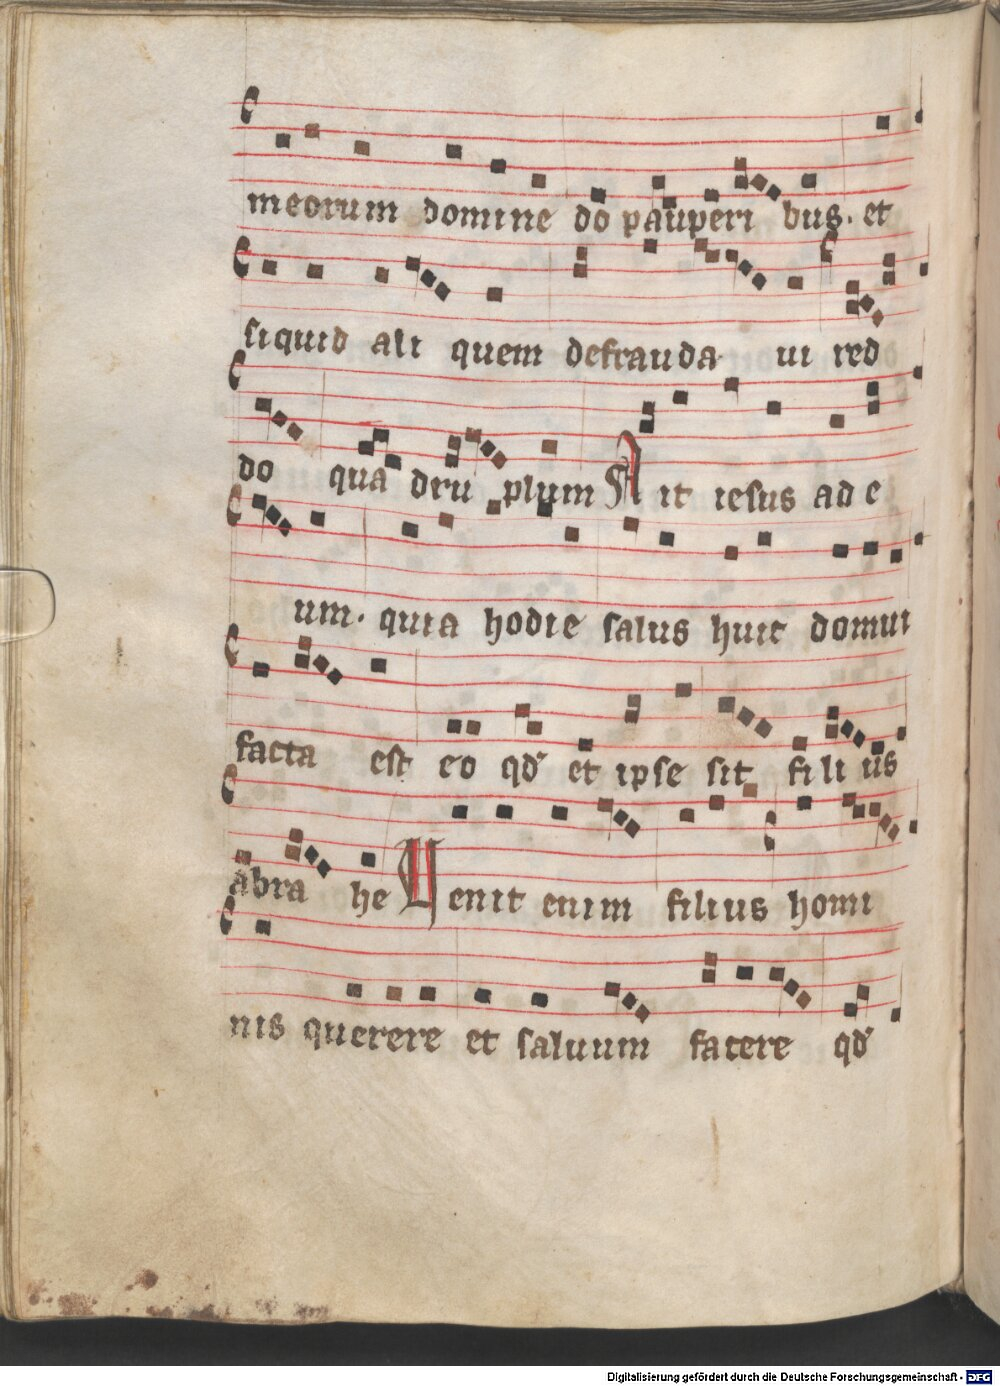 meorum domine do pauperi bus. et
siquid ali quem defrauda ui red
do qua dru plum Ait iesus ad e
um. quia hodie salus huic domui
facta est eo qd' et ipse sit fili us
abra he Uenit enim filius homi
nis querere et saluum facere qd'
Digitalisierung gefördert durch die Deutsche Forschungsgemeinschaft - DFG